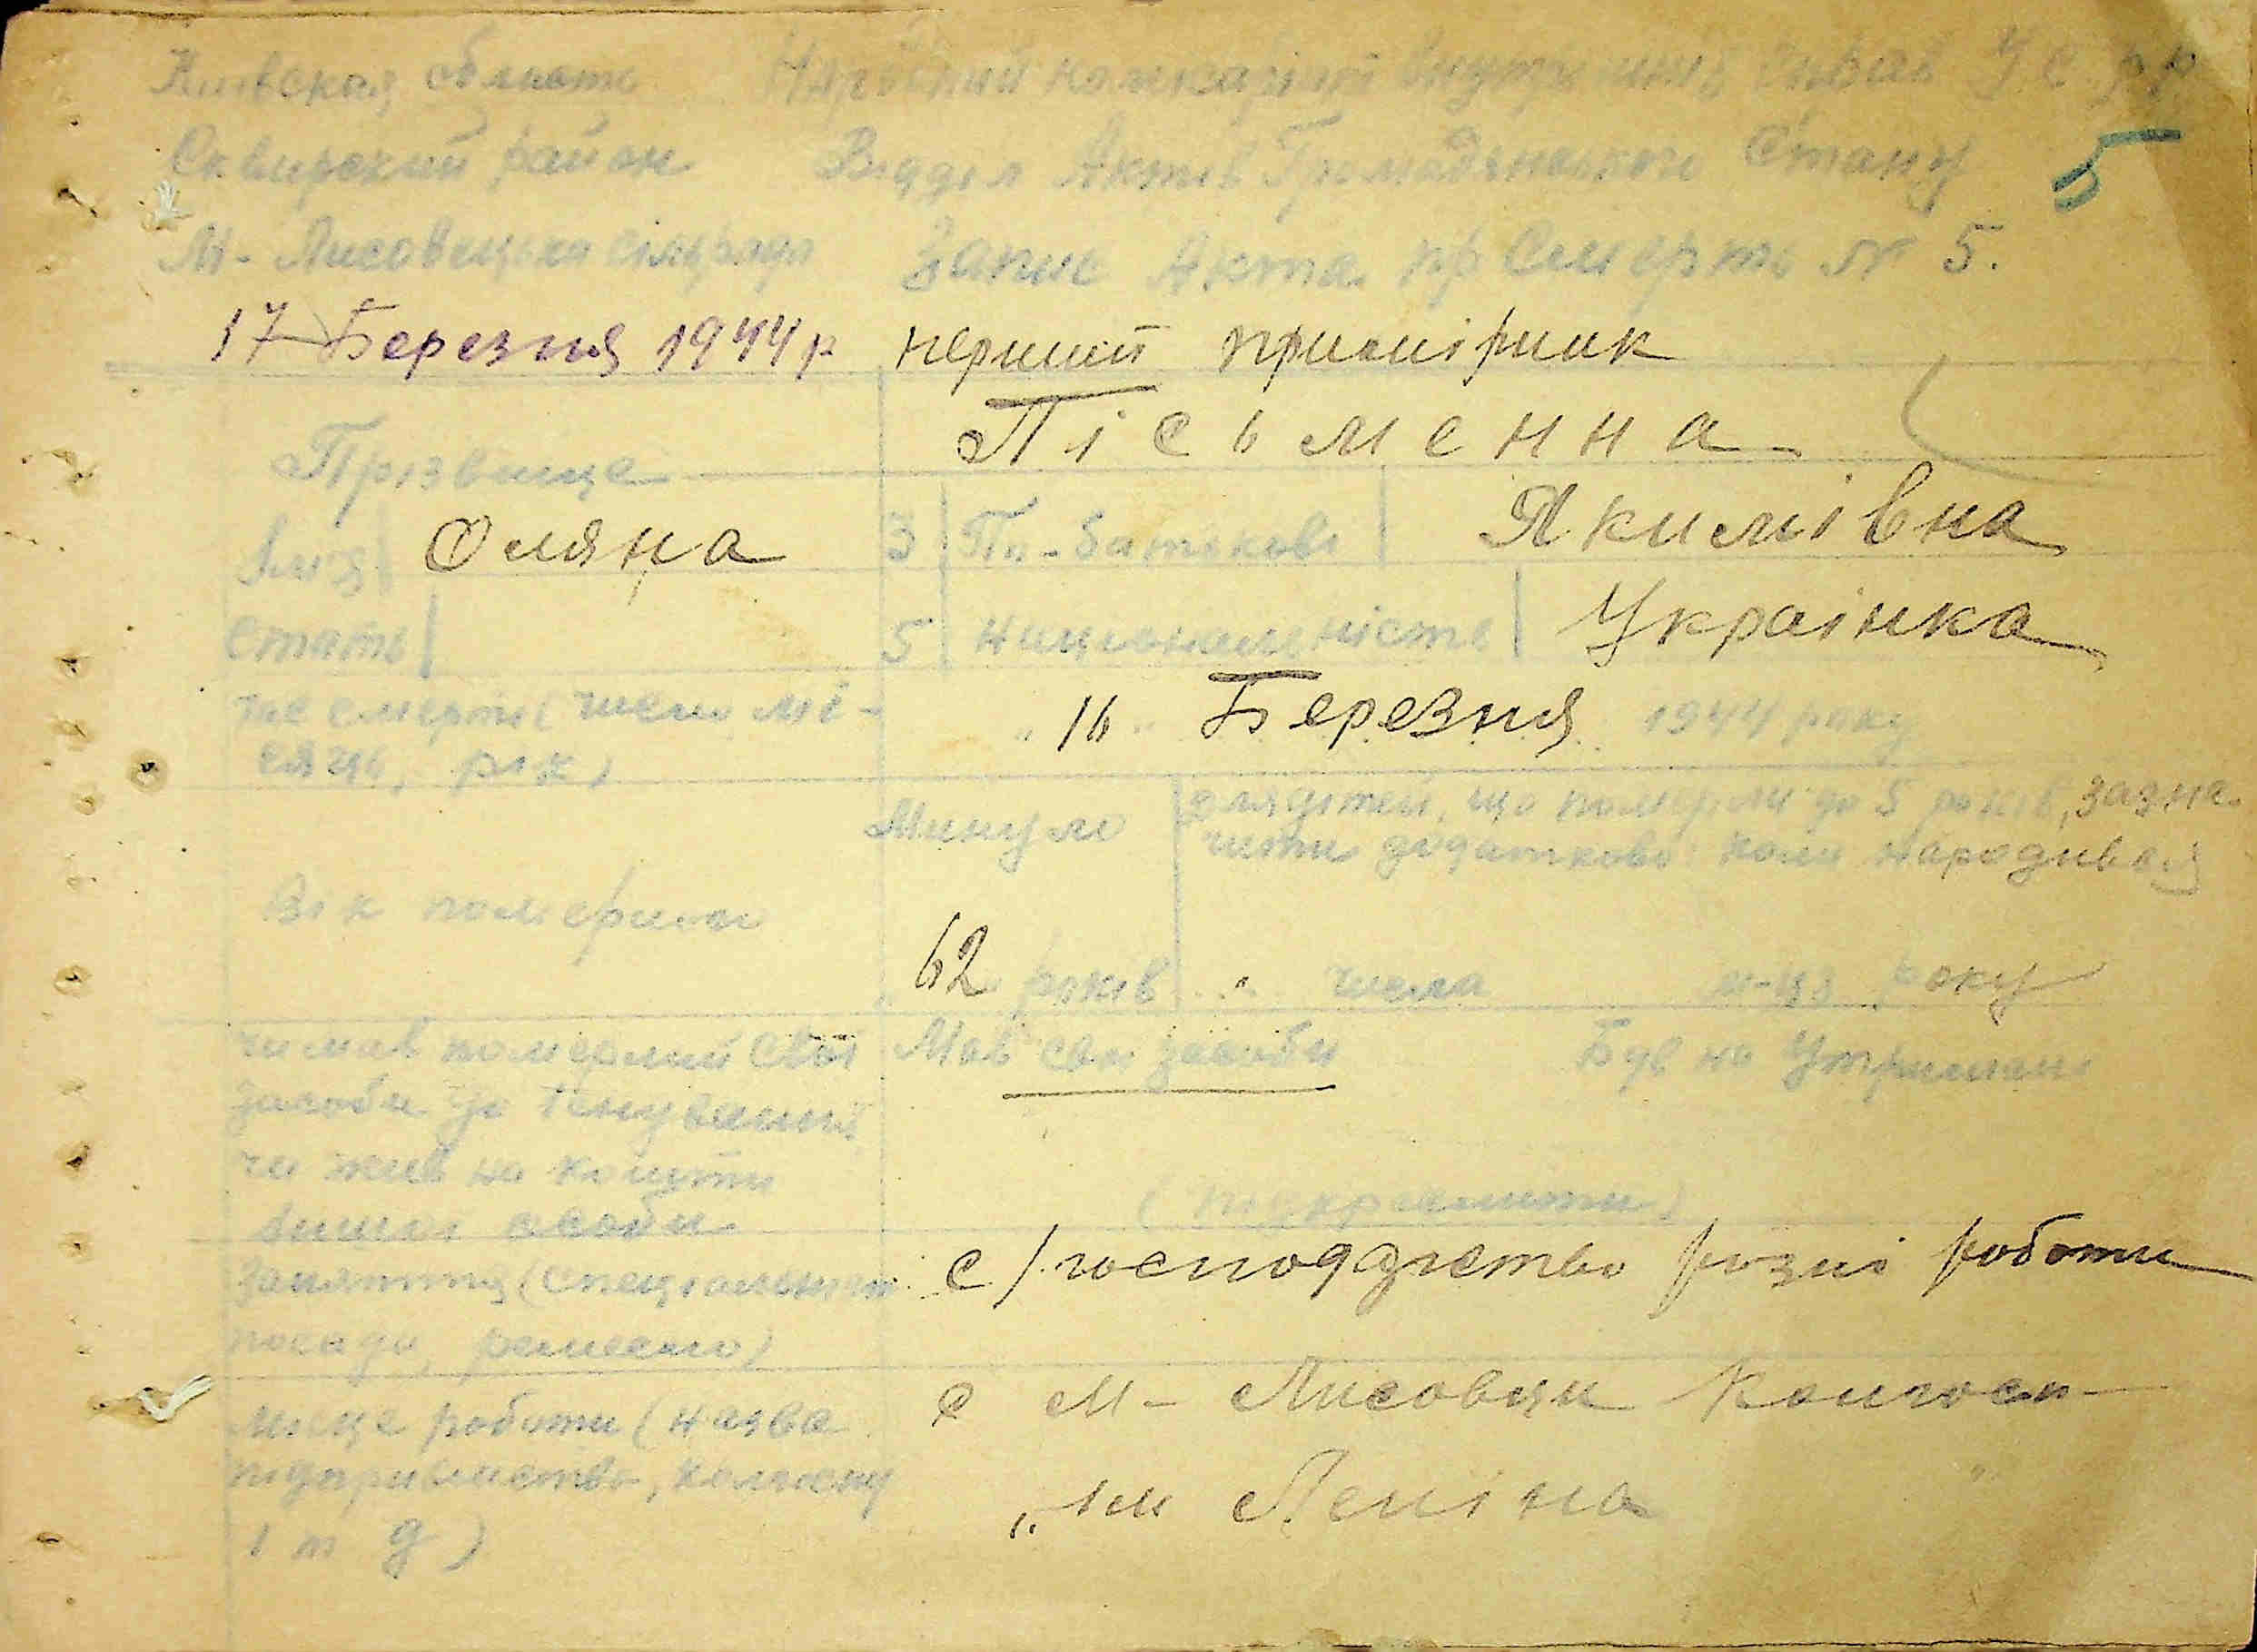 Київская область Народний комісаріят внутрішніх справ У С Р Р
Сквирский район Відділ Актів Громадянського Стану 5
М-Лисовецька сільрада Запис Акта пр Смерть № 5.
17 Березня 1944 р перший примірник
Прізвище Пісьменна
Імя Оляна 3 По-батькові Якимівна
Стать 5 Національність Українка
час смерти (число мі- „ 16 " Березня 1944 року
сяць, рік)
Минуло для дітей, що померли до 5 років, зазна-
чити додатково коли народився
Вік помершої
62 років " числа м-ця року
чи мав померший свої Мав свои засоби Був на Утримані
засоби до існування
чи жив на кошти
іншої особи (підкреслити)
Заняття (спеціальність с/господарство різні роботи
посада, ремесло)
місце роботи (назва с М-Лисовци Колгосп
підприємства, колгоспу
і т д) „ім Леніна"